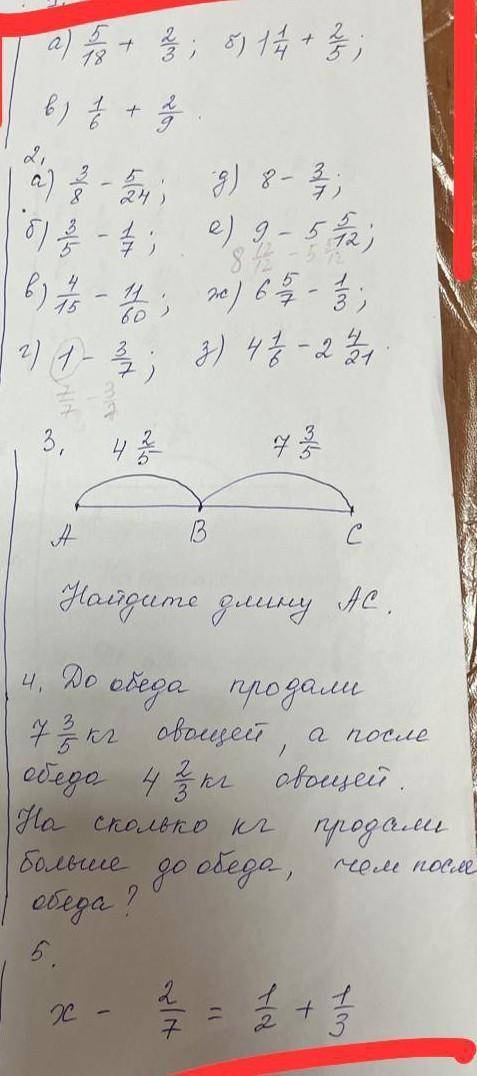 а) 5/18 + 2/3; б) 1 1/4 + 2/5;
в) 1/6 + 2/9.
2.
а) 3/8 - 5/24; д) 8 - 3/7;
б) 3/5 - 1/7; е) 9 - 5 5/12;
8 12/12 - 5 5/12
в) 4/15 - 11/60; ж) 6 5/7 - 1/3;
г) 1 - 3/7; з) 4 1/6 - 2 4/21.
7/7 - 3/7
3. 4 2/5 7 3/5
А В С
Найдите длину АС.
4. До обеда продали
7 3/5 кг овощей, а после
обеда 4 2/3 кг овощей.
На сколько кг продали
больше до обеда, чем после
обеда?
5.
x - 2/7 = 1/2 + 1/3